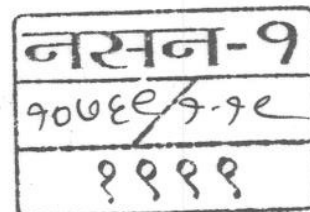 नसन-१
१०७६९/१-१९
१९९९